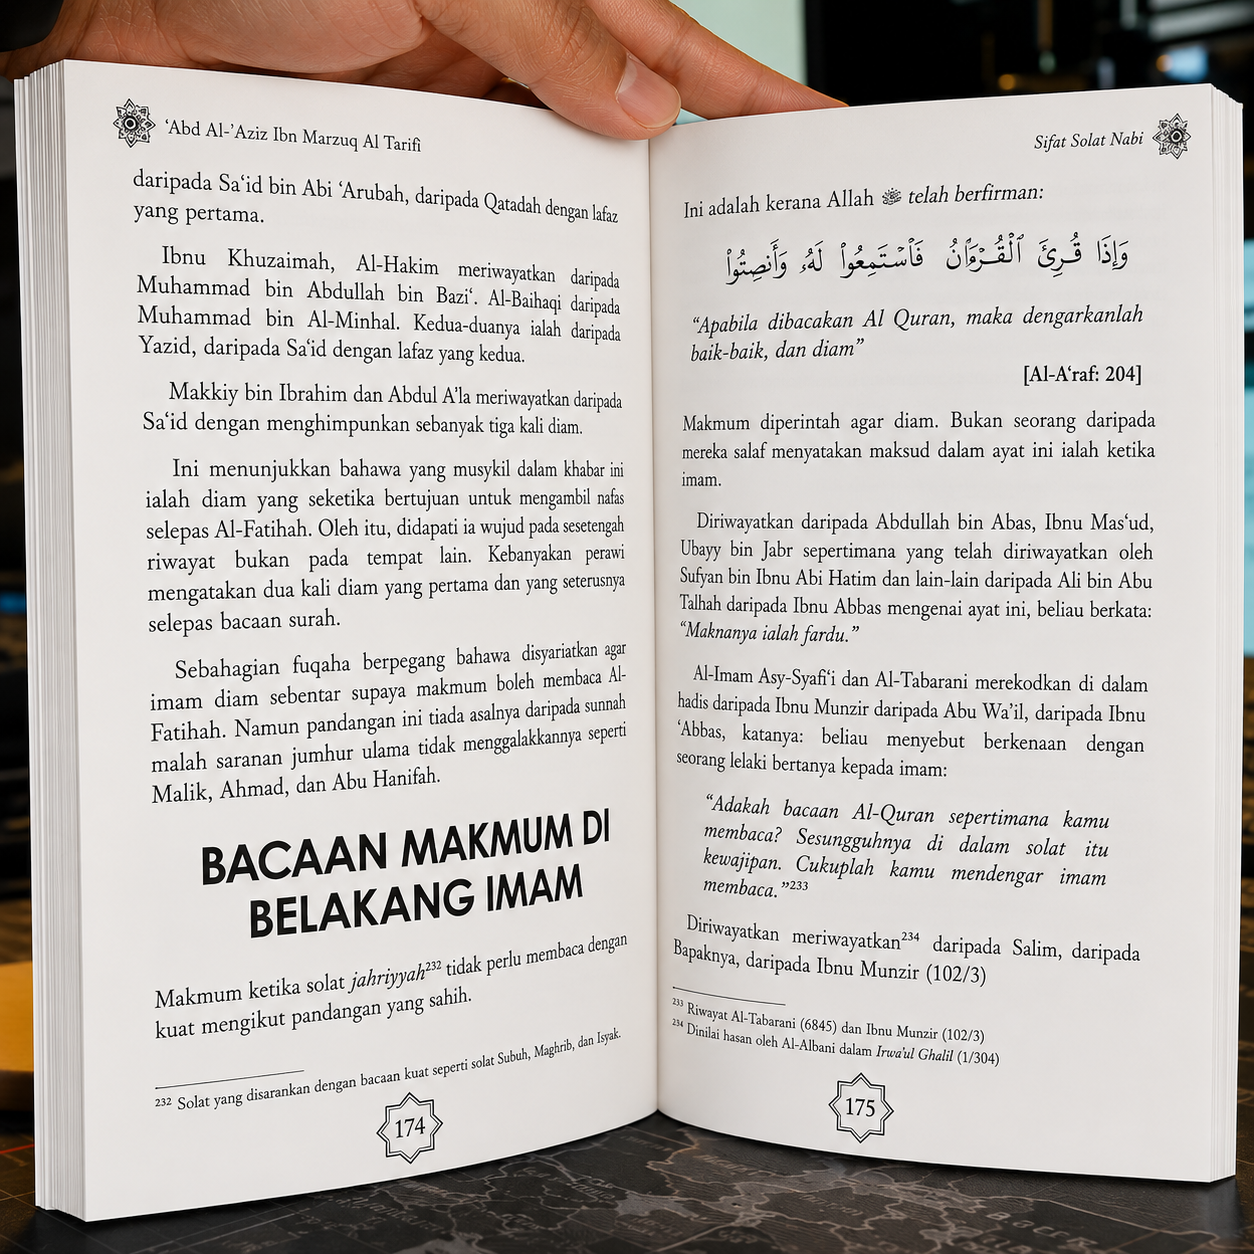 ‘Abd Al-’Aziz Ibn Marzuq Al Tarifi
daripada Sa‘id bin Abi ‘Arubah, daripada Qatadah dengan lafaz
yang pertama.
Ibnu Khuzaimah, Al-Hakim meriwayatkan daripada
Muhammad bin Abdullah bin Bazi‘. Al-Baihaqi daripada
Muhammad bin Al-Minhal. Kedua-duanya ialah daripada
Yazid, daripada Sa‘id dengan lafaz yang kedua.
Makkiy bin Ibrahim dan Abdul A’la meriwayatkan daripada
Sa‘id dengan menghimpunkan sebanyak tiga kali diam.
Ini menunjukkan bahawa yang musykil dalam khabar ini
ialah diam yang seketika bertujuan untuk mengambil nafas
selepas Al-Fatihah. Oleh itu, didapati ia wujud pada sesetengah
riwayat bukan pada tempat lain. Kebanyakan perawi
mengatakan dua kali diam yang pertama dan yang seterusnya
selepas bacaan surah.
Sebahagian fuqaha berpegang bahawa disyariatkan agar
imam diam sebentar supaya makmum boleh membaca Al-
Fatihah. Namun pandangan ini tiada asalnya daripada sunnah
malah saranan jumhur ulama tidak menggalakkannya seperti
Malik, Ahmad, dan Abu Hanifah.
BACAAN MAKMUM DI
BELAKANG IMAM
Makmum ketika solat jahriyyah²³² tidak perlu membaca dengan
kuat mengikut pandangan yang sahih.
²³² Solat yang disarankan dengan bacaan kuat seperti solat Subuh, Maghrib, dan Isyak.
174
Sifat Solat Nabi
Ini adalah kerana Allah ﷻ telah berfirman:
وَإِذَا قُرِئَ ٱلْقُرْءَانُ فَٱسْتَمِعُوا۟ لَهُۥ وَأَنصِتُوا۟
“Apabila dibacakan Al Quran, maka dengarkanlah
baik-baik, dan diam”
[Al-A‘raf: 204]
Makmum diperintah agar diam. Bukan seorang daripada
mereka salaf menyatakan maksud dalam ayat ini ialah ketika
imam.
Diriwayatkan daripada Abdullah bin Abas, Ibnu Mas‘ud,
Ubayy bin Jabr sepertimana yang telah diriwayatkan oleh
Sufyan bin Ibnu Abi Hatim dan lain-lain daripada Ali bin Abu
Talhah daripada Ibnu Abbas mengenai ayat ini, beliau berkata:
“Maknanya ialah fardu.”
Al-Imam Asy-Syafi‘i dan Al-Tabarani merekodkan di dalam
hadis daripada Ibnu Munzir daripada Abu Wa’il, daripada Ibnu
‘Abbas, katanya: beliau menyebut berkenaan dengan
seorang lelaki bertanya kepada imam:
“Adakah bacaan Al-Quran sepertimana kamu
membaca? Sesungguhnya di dalam solat itu
kewajipan. Cukuplah kamu mendengar imam
membaca.”²³³
Diriwayatkan meriwayatkan²³⁴ daripada Salim, daripada
Bapaknya, daripada Ibnu Munzir (102/3)
²³³ Riwayat Al-Tabarani (6845) dan Ibnu Munzir (102/3)
²³⁴ Dinilai hasan oleh Al-Albani dalam Irwa’ul Ghalil (1/304)
175